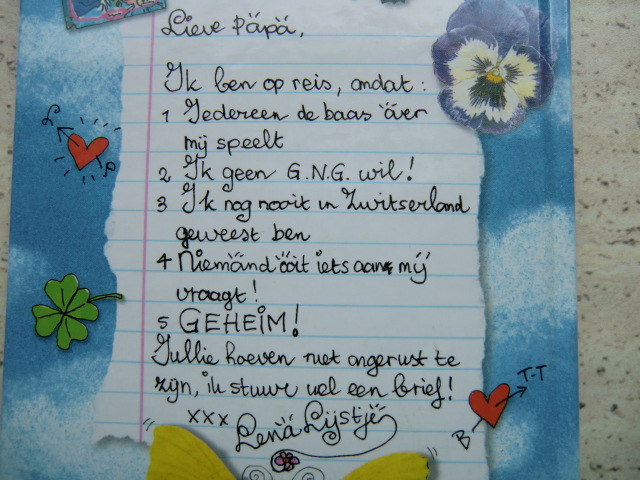 Lieve päpä,
Ik ben op reis, omdat:
1 Iedereen de baas över
mij speelt
2 Ik geen G.N.G. wil!
3 Ik nog nooit in Zwitserland
geweest ben
4 Niemänd ööit iets aan mij
vraagt!
5 GEHEIM!
Jullie hoeven niet ongerust te
zijn, ik stuur wel een brief!
xxx Lenä Lijstje
T-T
B